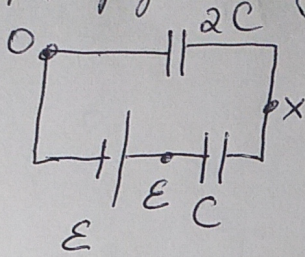 O 2C
X
ε C
ε